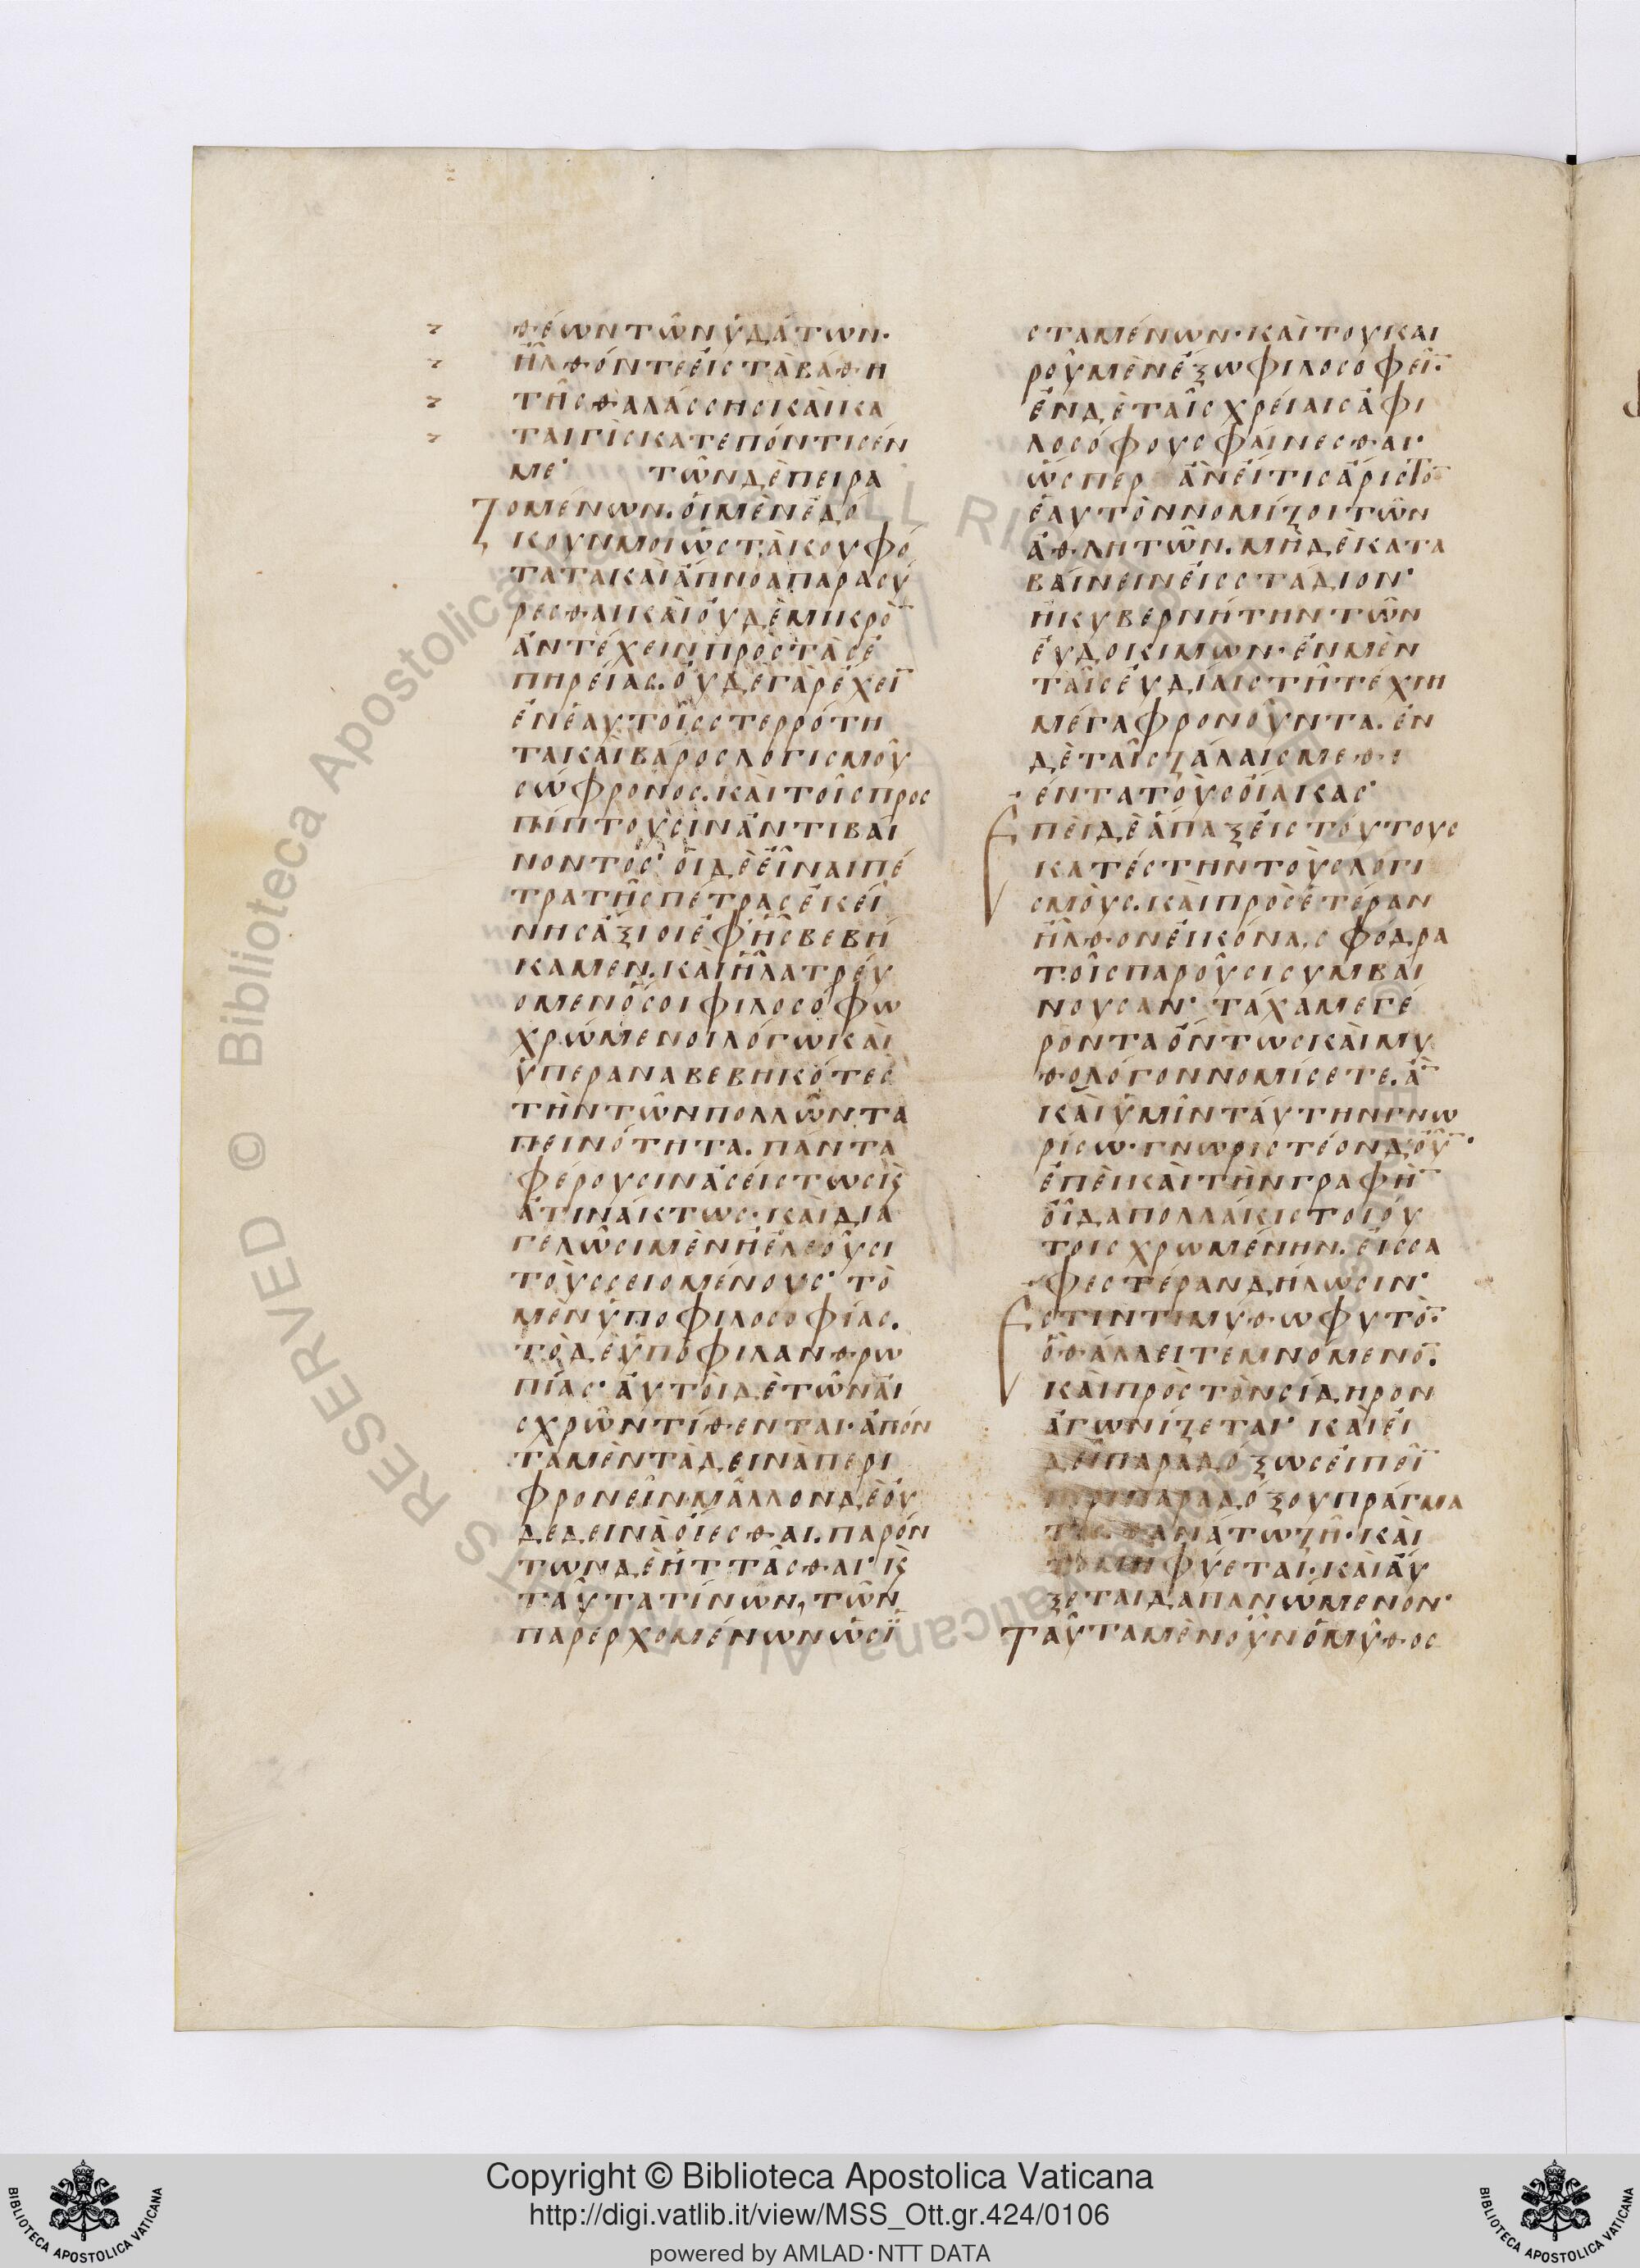 θέων τῶν ὑδάτων·
ἦλθόν τε εἰς τὰ βάθη
τῆς θαλάσσης καὶ κα
ταιγὶς κατεπόντισέν
με· τῶν δὲ πειρα
ζομένων. οἱ μὲν ἐδό
κουν μοι ὡς τὰ κουφό
τατα καὶ ἄπνοα παρασύ
ρεσθαι καὶ οὐδὲ μικρὸ̄
ἀντέχειν πρὸς τὰς ἐ
πηρείας. οὐδὲ γὰρ ἔχεῑ
ἐν ἑαυτοῖς στερρότη
τα καὶ βάρος λογισμοῦ
σώφρονος. καὶ τοῖς προς
πίπτουσιν ἀντιβαί
νοντος· οἱ δὲ εἶναι πέ
τρα τῆς πέτρας ἐκεί
νης ἄξιοι ἐφ' ἧς βεβή
καμεν. καὶ ἣ λατρευ
όμενος οἱ φιλοσόφω
χρώμενοι λόγω καὶ
ὑπεραναβεβηκότες
τὴν τῶν πολλῶν τα
πεινότητα. πάντα
φέρουσιν ἀσείστως κ̀
ἀτινάκτως· καὶ δια
γελῶσι μὲν ἢ ἐλεοῦσι
τοὺς σειομένους· τὸ
μὲν ὑπο φιλοσοφίας.
τὸ δὲ ὑπὸ φιλανθρω
πίας· αὐτοὶ δὲ τῶν αἰ
σχρῶν τίθενται· ἀπόν
τα μὲν τὰ δεινὰ περι
φρονεῖν· μᾶλλον δὲ οὐ
δὲ δεινὰ οἴεσθαι. παρόν
των δὲ ἡττᾶσθαι· κ̀
ταῦτα τίνων, τῶν
παρερχομένων ὡς ἱ
σταμένων· καὶ τοῦ και
ροῦ μὲν ἔξω φιλοσοφει̃̄·
ἐν δὲ ταῖς χρείαις ἀφι
λοσόφους φαίνεσθαι·
ὥσπερ ἂν εἴ τις ἄριστο̄
ἑαυτὸν νομίζοι τῶν
ἀθλητῶν. μηδὲ κατα
βαίνειν εἰς στάδιον·
ἢ κυβερνήτην τῶν
εὐδοκίμων· ἐν μὲν
ταῖς εὐδίαις τῆ τέχνη
μέγα φρονοῦντα. ἐν
δὲ ταῖς ζάλαις μεθι
έντα τοὺς οἴακας·
Ἐπεὶ δὲ ἅπαξ εἰς τούτους
κατέστην τοὺς λογι
σμοὺς. καὶ πρὸς ἑτέραν
ἦλθον εἰκόνα, σφόδρα
τοῖς παροῦσι συμβαί
νουσαν· τάχα με γέ
ροντα ὄντως καὶ μυ
θολόγον νομίσετε. ἂ̄
καὶ ὑμῖν ταύτην γνω
ρίσω· γνωριστέον δ' οὖ̄·
ἐπεὶ καὶ τὴν γραφὴ̄
οἶδα πολλάκις τοιού
τοις χρωμένην. εἰς σα
φεστέραν δήλωσιν·
Ἔστιν τι μύθω φυτὸ̄·
ὃ θάλλει τεμνόμενο̄.
καὶ πρὸς τὸν σίδηρον
ἀγωνίζεται· καὶ εἰ
δεῖ παραδόξως εἰπει̃̄
περὶ παραδόξου πράγμα
τος θανάτω ζῆ· καὶ
τομῆ φύεται· καὶ αὔ
ξεται δαπανώμενον·
Ταῦτα μὲν οὖν ὁ μῦθος
Copyright © Biblioteca Apostolica Vaticana
http://digi.vatlib.it/view/MSS_Ott.gr.424/0106
powered by AMLAD·NTT DATA